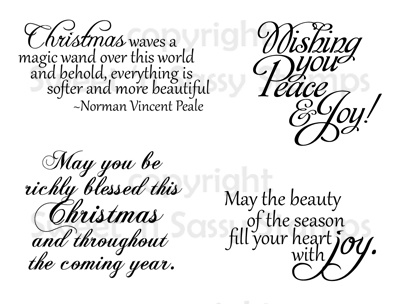 Christmas waves a
magic wand over this world
and behold, everything is
softer and more beautiful
~Norman Vincent Peale
Wishing
you
Peace
& Joy!
May you be
richly blessed this
Christmas
and throughout
the coming year.
May the beauty
of the season
fill your heart
with joy.
copyright
Sweet 'n Sassy Stamps
copyright
Sweet 'n Sassy Stamps